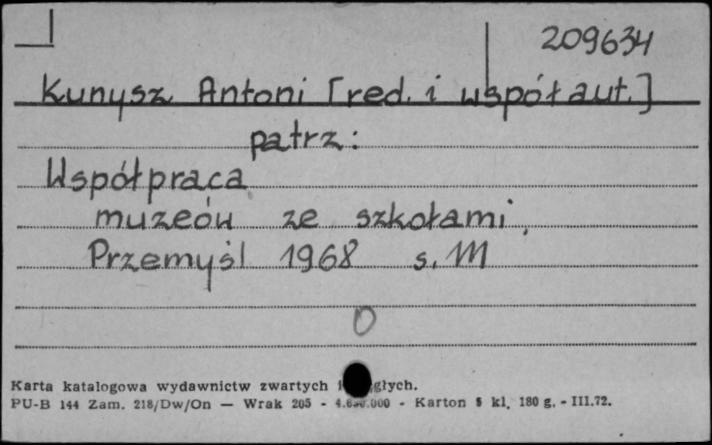 209634
Kunysz Antoni [red. i współaut.]
patrz:
Współpraca
muzeów ze szkołami.
Przemyśl 1968 s. 111
0
Karta katalogowa wydawnictw zwartych
PU-B 144 Zam. 218/Dw/On — Wrak 205 - Karton 5 kl. 180 g. - III.72.